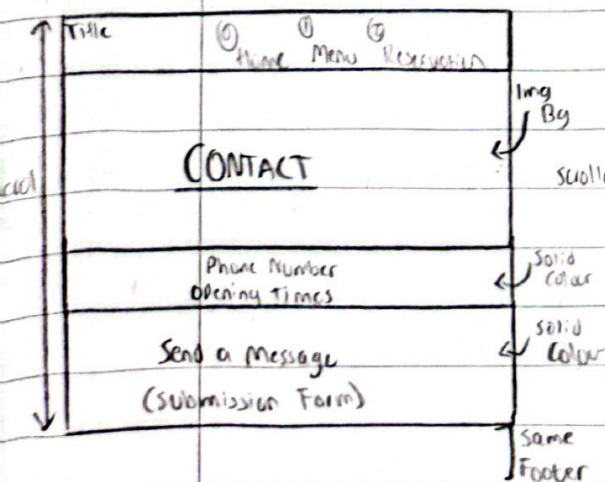 Title
Home Menu Reservation
Img
Bg
CONTACT
Phone Number
Opening Times
Solid
Colour
Send a Message
(Submission Form)
Solid
Colour
Same
Footer